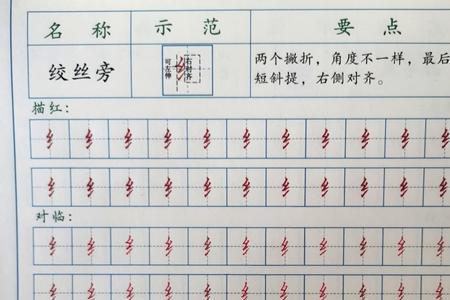 名 称 示 范 要 点
绞丝旁 可左伸 右对齐 两个撇折，角度不一样，最后
短斜提，右侧对齐。
描红：
纟 纟 纟 纟 纟 纟 纟 纟 纟 纟 纟
纟 纟 纟 纟 纟 纟 纟 纟 纟 纟 纟
对临：
纟 纟 纟 纟 纟 纟 纟 纟 纟 纟 纟
纟 纟 纟 纟 纟 纟 纟 纟 纟 纟 纟